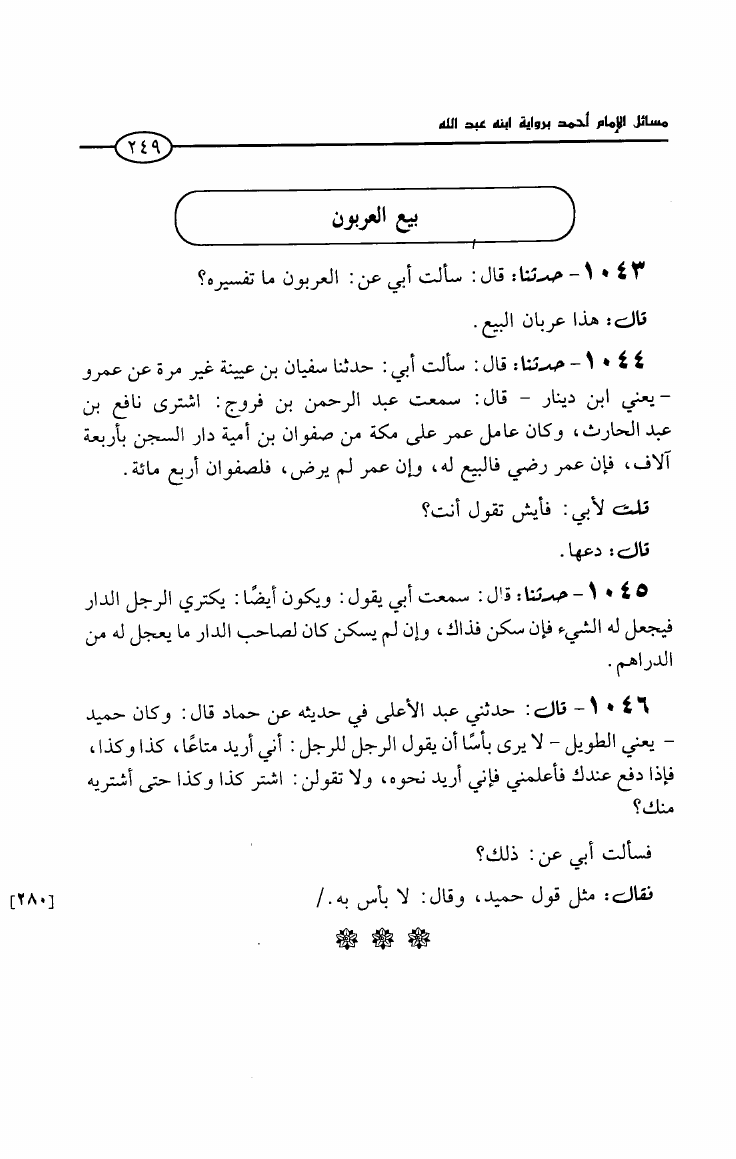 مسائل الإمام أحمد برواية ابنه عبد الله
٢٤٩
بيع العربون
١٠٤٣ - حدثنا: قال: سألت أبي عن: العربون ما تفسيره؟
قال: هذا عربان البيع.
١٠٤٤ - حدثنا: قال: سألت أبي: حدثنا سفيان بن عيينة غير مرة عن عمرو
- يعني ابن دينار - قال: سمعت عبد الرحمن بن فروج: اشترى نافع بن
عبد الحارث، وكان عامل عمر على مكة من صفوان بن أمية دار السجن بأربعة
آلاف، فإن عمر رضي فالبيع له، وإن عمر لم يرض، فلصفوان أربع مائة.
قلت لأبي: فأيش تقول أنت؟
قال: دعها.
١٠٤٥ - حدثنا: قال: سمعت أبي يقول: ويكون أيضًا: يكتري الرجل الدار
فيجعل له الشيء فإن سكن فذاك، وإن لم يسكن كان لصاحب الدار ما يعجل له من
الدراهم.
١٠٤٦ - قال: حدثني عبد الأعلى في حديثه عن حماد قال: وكان حميد
- يعني الطويل - لا يرى بأسًا أن يقول الرجل للرجل: أني أريد متاعًا، كذا وكذا،
فإذا دفع عندك فأعلمني فإني أريد نحوه، ولا تقولن: اشتر كذا وكذا حتى أشتريه
منك؟
فسألت أبي عن: ذلك؟
فقال: مثل قول حميد، وقال: لا بأس به./
[٢٨٠]